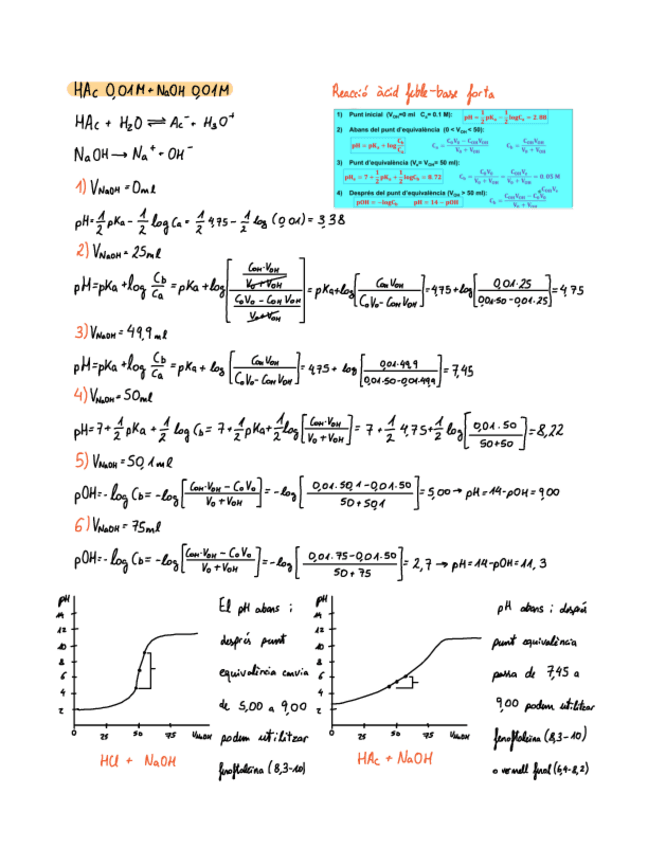 HAc 0,01M + NaOH 0,01M
Reacció àcid feble-base forta
HAc + H₂O ⇌ Ac⁻ + H₃O⁺
NaOH → Na⁺ + OH⁻
1) Punt inicial (V_OH=0 ml C_a= 0.1 M): pH = 1/2 pK_a − 1/2 logC_a = 2.88
2) Abans del punt d'equivalència (0 < V_OH < 50):
pH = pK_a + log C_b/C_a C_a = (C_aV_a − C_OHV_OH)/(V_a + V_OH) C_b = C_OHV_OH/(V_a + V_OH)
3) Punt d'equivalència (V_a= V_OH= 50 ml):
pH_e = 7 + 1/2 pK_a + 1/2 logC_b = 8.72 C_b = C_aV_a/(V_a + V_OH) = C_OHV_OH/(V_a + V_OH) = 0.05 M
4) Després del punt d'equivalència (V_OH > 50 ml):
pOH = −logC_b pH = 14 − pOH C_b = (C_OHV_OH − C_aV_a)/(V_a + V_OH)
1) V_NaOH = 0ml
pH = 1/2 pKa − 1/2 log Ca = 1/2 4,75 − 1/2 log (0,01) = 3,38
2) V_NaOH = 25ml
pH = pKa + log Cb/Ca = pKa + log [(C_OH·V_OH/(V_0 + V_OH))/((C_0V_0 − C_OH V_OH)/(V_0 + V_OH))] = pKa + log [C_OH V_OH/(C_0V_0 − C_OH V_OH)] = 4,75 + log [0,01·25/(0,01·50 − 0,01·25)] = 4,75
3) V_NaOH = 49,9 ml
pH = pKa + log Cb/Ca = pKa + log [C_OH V_OH/(C_0V_0 − C_OH V_OH)] = 4,75 + log [0,01·49,9/(0,01·50 − 0,01·49,9)] = 7,45
4) V_NaOH = 50ml
pH = 7 + 1/2 pKa + 1/2 log Cb = 7 + 1/2 pKa + 1/2 log [C_OH·V_OH/(V_0 + V_OH)] = 7 + 1/2 4,75 + 1/2 log [0,01·50/(50+50)] = 8,22
5) V_NaOH = 50,1 ml
pOH = − log Cb = −log [(C_OH·V_OH − C_0V_0)/(V_0 + V_OH)] = −log [(0,01·50,1 − 0,01·50)/(50 + 50,1)] = 5,00 → pH = 14 − pOH = 9,00
6) V_NaOH = 75ml
pOH = − log Cb = −log [(C_OH·V_OH − C_0V_0)/(V_0 + V_OH)] = −log [(0,01·75 − 0,01·50)/(50 + 75)] = 2,7 → pH = 14 − pOH = 11,3
pH
14
12
10
8
6
4
2
0 25 50 75 V_NaOH
HCl + NaOH
El pH abans i
després punt
equivalència canvia
de 5,00 a 9,00
podem utilitzar
fenoftaleïna (8,3-10)
pH
14
12
10
8
6
4
2
0 25 50 75 V_NaOH
HAc + NaOH
pH abans i després
punt equivalència
passa de 7,45 a
9,00 podem utilitzar
fenoftaleïna (8,3-10)
o vermell fenol (6,4-8,2)